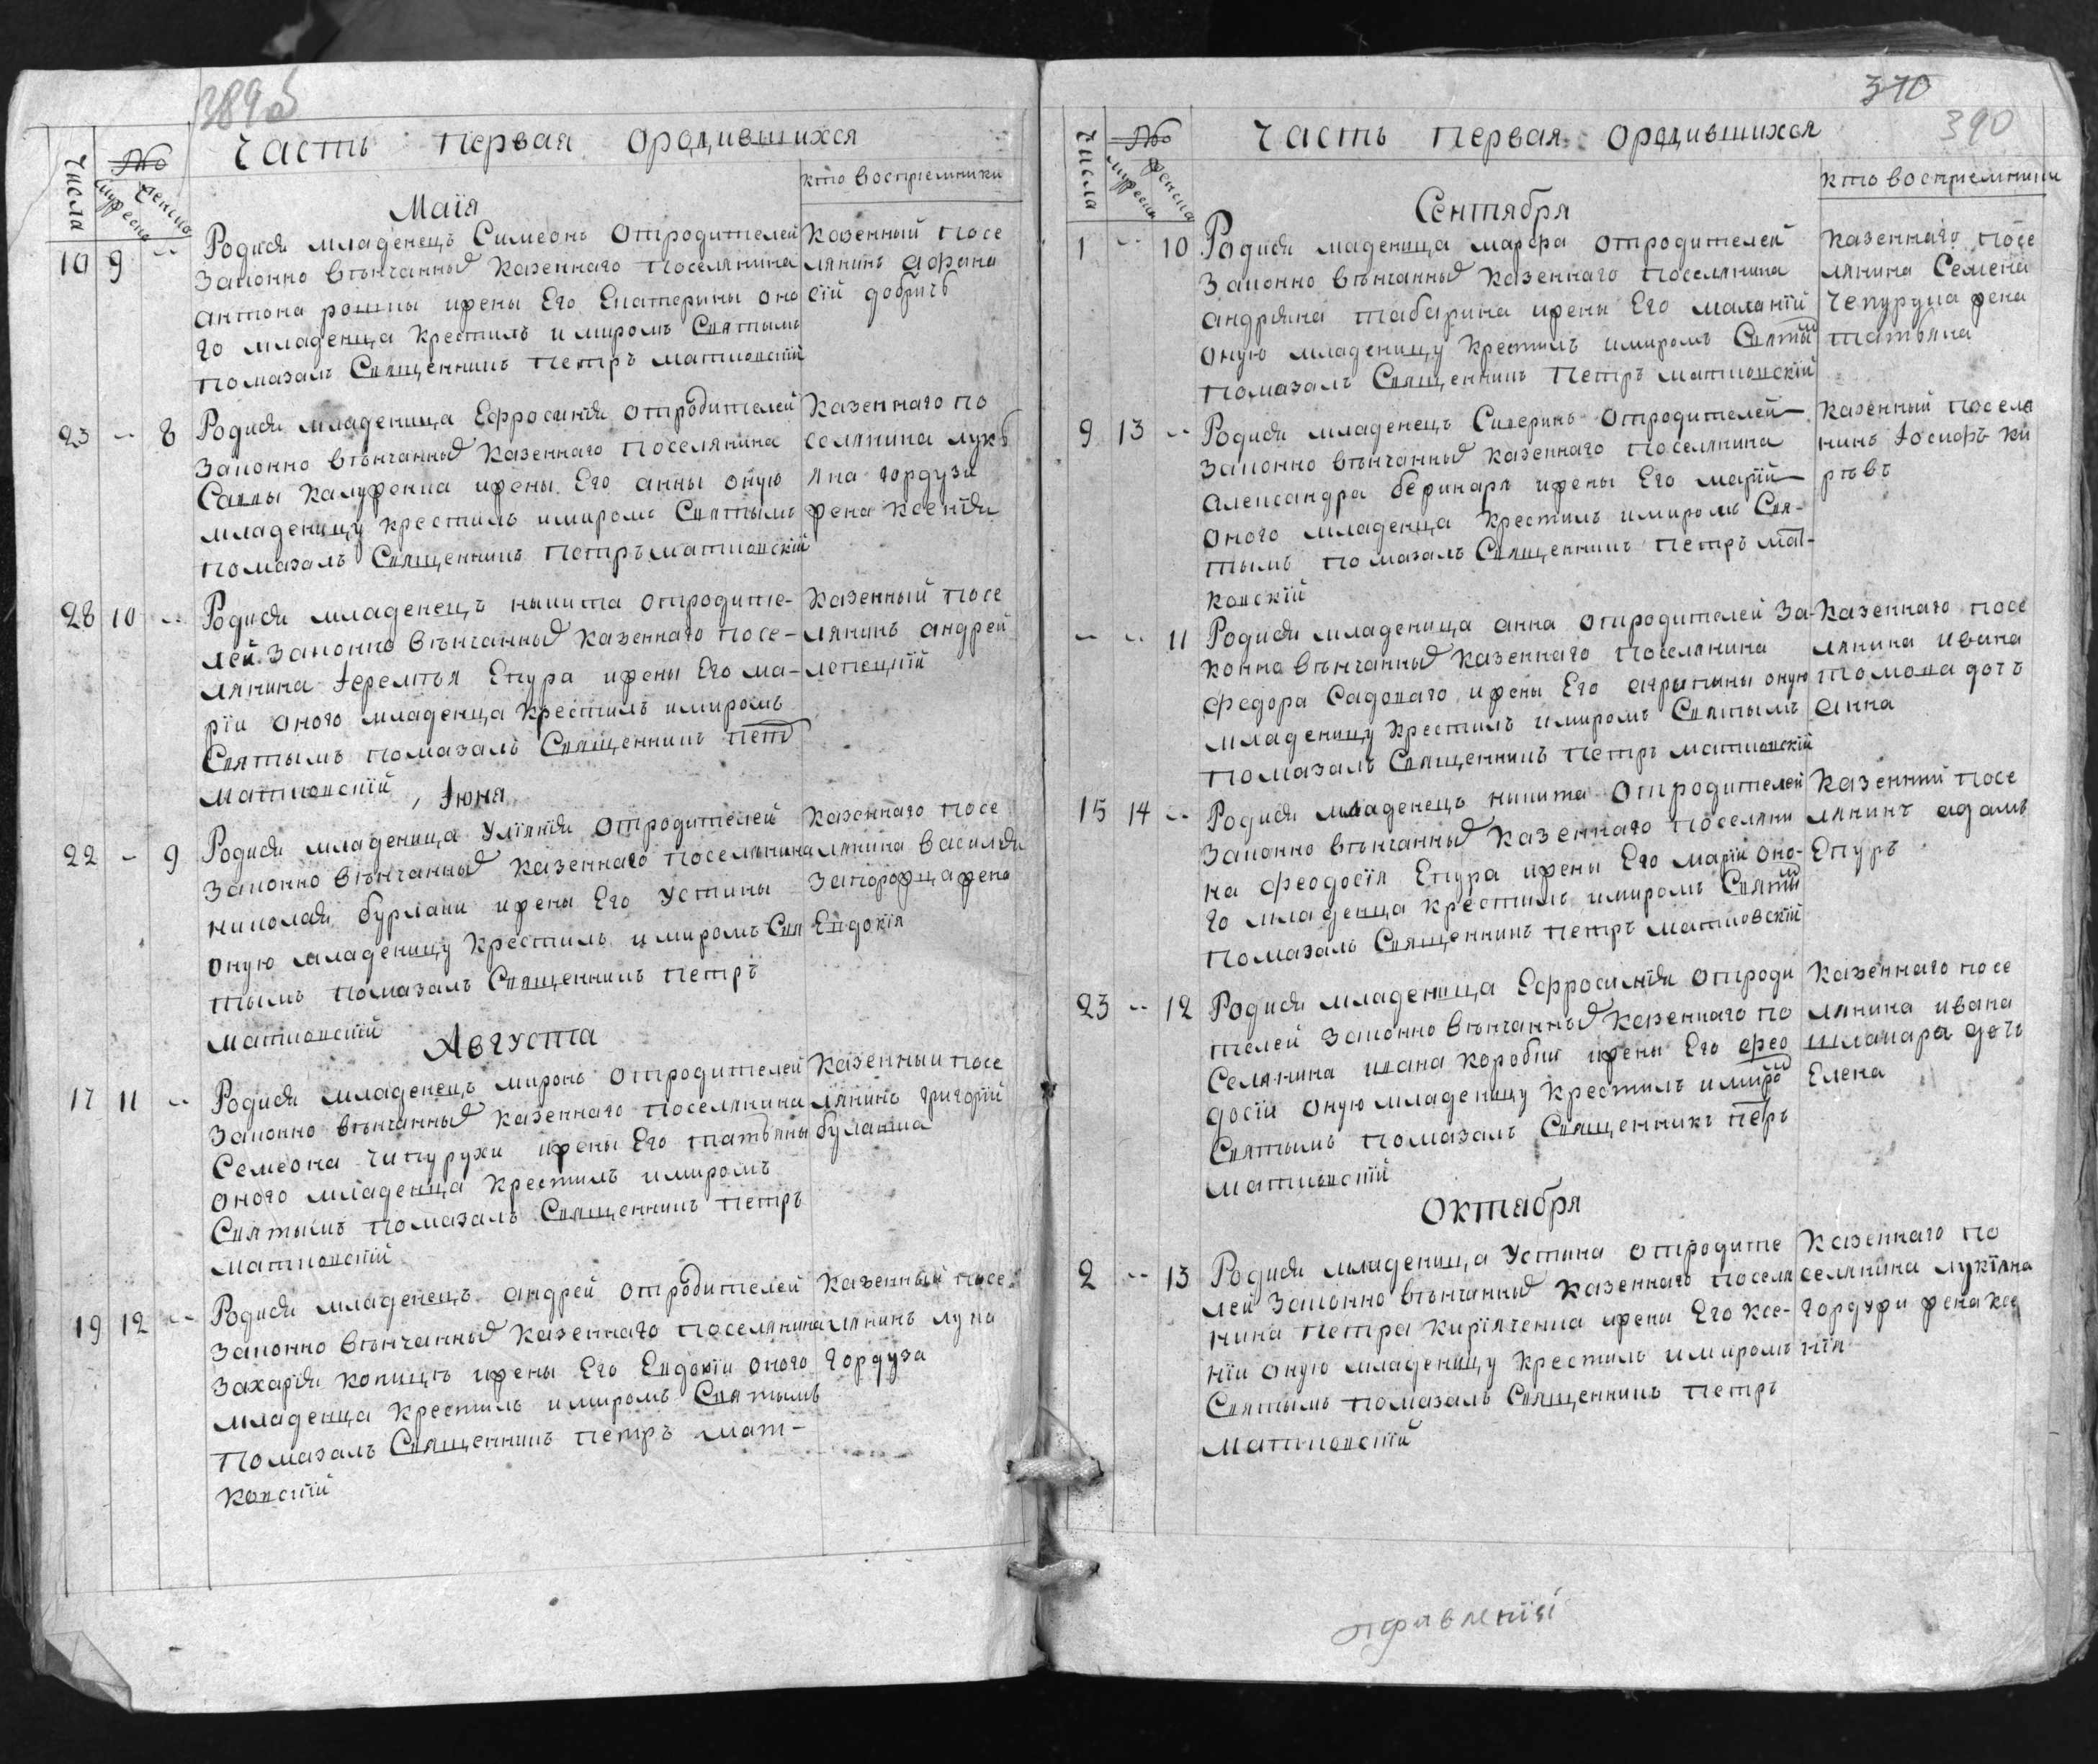 389 об
Часть первая ородившихся
Числа № мужеска женска
кто восприемники
Маїя
10 9 -- Родися младенецъ Симеонъ отродителей
законно вѣнчанных казеннаго поселянина
антона рошпы ижены Его Екатерины оно
го младенца крестилъ имиромъ Святымъ
помазалъ Священникъ петръ матковскїй
казенный посе
лянинъ афана
сїй добричъ
23 -- 8 Родися младеница Ефросинїя отродителей
законно вѣнчанных казеннаго поселянина
Саввы калуженка ижены Его анны оную
младеницу крестилъ имиромъ Святымъ
помазалъ Священникъ петръ матковскїй
казеннаго по
селянина лукѣ
яна гордузи
жена ксенїя
28 10 -- Родися младенецъ никита отродите-
лей законно вѣнчанных казеннаго посе-
лянина Iеремѣя Епура ижены Его ма-
рїи оного младенца крестилъ имиромъ
Святымъ помазалъ Священникъ петр
матковскїй
казенный посе
лянинъ андрей
лепецкїй
Iюня
22 -- 9 Родися младеница Улїянїя отродителей
законно вѣнчанных казеннаго поселянина
николая бурлаки ижены Его Устины
оную младеницу крестилъ имиромъ Свя
тымъ помазалъ Священникъ петръ
матковскїй
казеннаго посе
лянина василия
запорожца жена
Евдокїя
Августа
17 11 -- Родися младенецъ миронъ отродителей
законно вѣнчанных казеннаго поселянина
Семеона чипурухи ижены Его татьяны
оного младенца крестилъ имиромъ
Святымъ помазалъ Священникъ петръ
матковскїй
казенный посе
лянинъ григорїй
булавка
19 12 -- Родися младенецъ андрей отродителей
законно вѣнчанных казеннаго поселянина
захарїя копицъ ижены Его Евдокїи оного
младенца крестилъ имиромъ Святымъ
помазалъ Священникъ петръ мат-
ковскїй
казенный посе
лянинъ лука
гордуза
370
390
Часть первая ородившихся
Числа № мужеска женска
кто восприемники
Сентября
1 -- 10 Родися маденица марфа отродителей
законно вѣнчанных казеннаго поселянина
андрияна табарина ижены Его маланїй
оную младеницу крестилъ имиромъ Святым
помазалъ Священникъ петръ матковскїй
казеннаго посе
лянина Семена
чепуруха жена
татьяна
9 13 -- Родися младенецъ Сиверинъ отродителей
законно вѣнчанных казеннаго поселянина
александра беринаря ижены Его марїй
оного младенца крестилъ имиромъ Свя-
тымъ помазалъ Священникъ петръ мат-
ковскїй
казенный поселя
нинъ Iосифъ ки
рѣвъ
-- -- 11 Родися младеница анна отродителей за-
конно вѣнчанных казеннаго поселянина
федора Садоваго ижены Его агрипины оную
младеницу крестилъ имиромъ Святымъ
помазалъ Священникъ петръ матковскїй
казеннаго посе
лянина ивана
томова дочъ
анна
15 14 -- Родися младенецъ никита отродителей
законно вѣнчанных казеннаго поселяни
на феодосїя Епура ижены Его марїи оно-
го младенца крестилъ имиромъ Святым
помазалъ Священникъ петръ матковскїй
казенний посе
лянинъ адамъ
Епуръ
23 -- 12 Родися младеница Ефросинїя отроди
телей законно вѣнчанных казеннаго по
селянина ивана коробки ижены Его фео
досїи оную младеницу крестилъ имиро
Святымъ помазалъ Священникъ петръ
матковскїй
казеннаго посе
лянина ивана
шлапара дочъ
Елена
Октября
2 -- 13 Родися младеница Устина отродите
лей законно вѣнчанных казеннаго поселя
нина петра кирїяченка ижены Его ксе-
нїи оную младеницу крестилъ имиромъ
Святымъ помазалъ Священникъ петръ
матковскїй
казеннаго по
селянина лукїяна
гордузи жена ксе
нїя
правленїя